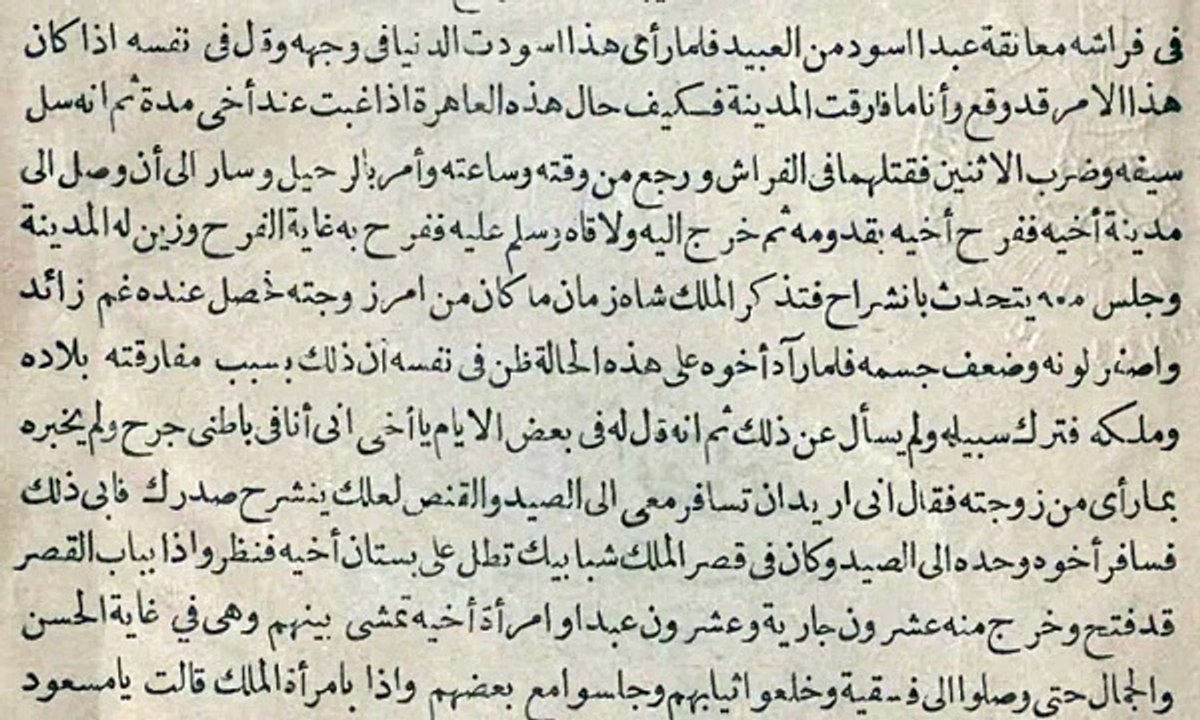 فى فراشه معانقة عبدا اسود من العبيد فلما رأى هذا اسودت الدنيا فى وجهه وقل فى نفسه اذا كان
هذا الامر قد وقع وأنا ما فارقت المدينة فكيف حال هذه العاهرة اذا غبت عند أخى مدة ثم انه سل
سيفه وضرب الاثنين فقتلهما فى الفراش ورجع من وقته وساعته وأمر بالرحيل وسار الى أن وصل الى
مدينة أخيه ففرح أخيه بقدومه ثم خرج اليه ولاقاه وسلم عليه ففرح به غاية الفرح وزين له المدينة
وجلس معه يتحدث بانشراح فتذكر الملك شاه زمان ما كان من امر زوجته فحصل عنده غم زائد
واصفر لونه وضعف جسمه فلما رآه أخوه على هذه الحالة ظن فى نفسه أن ذلك بسبب مفارقته بلاده
وملكه فترك سبيله ولم يسأل عن ذلك ثم انه قل له فى بعض الايام يا أخى انى أنا فى باطنى جرح ولم يخبره
بما رأى من زوجته فقال انى اريد ان تسافر معى الى الصيد والقنص لعلك ينشرح صدرك فابى ذلك
فسافر أخوه وحده الى الصيد وكان فى قصر الملك شبابيك تطل على بستان أخيه فنظر واذا بباب القصر
قد فتح وخرج منه عشرون جارية وعشرون عبدا وامرأة أخيه تمشى بينهم وهى في غاية الحسن
والجمال حتى وصلوا الى فسقية وخلعوا ثيابهم وجلسوا مع بعضهم واذا بامرأة الملك قالت يا مسعود